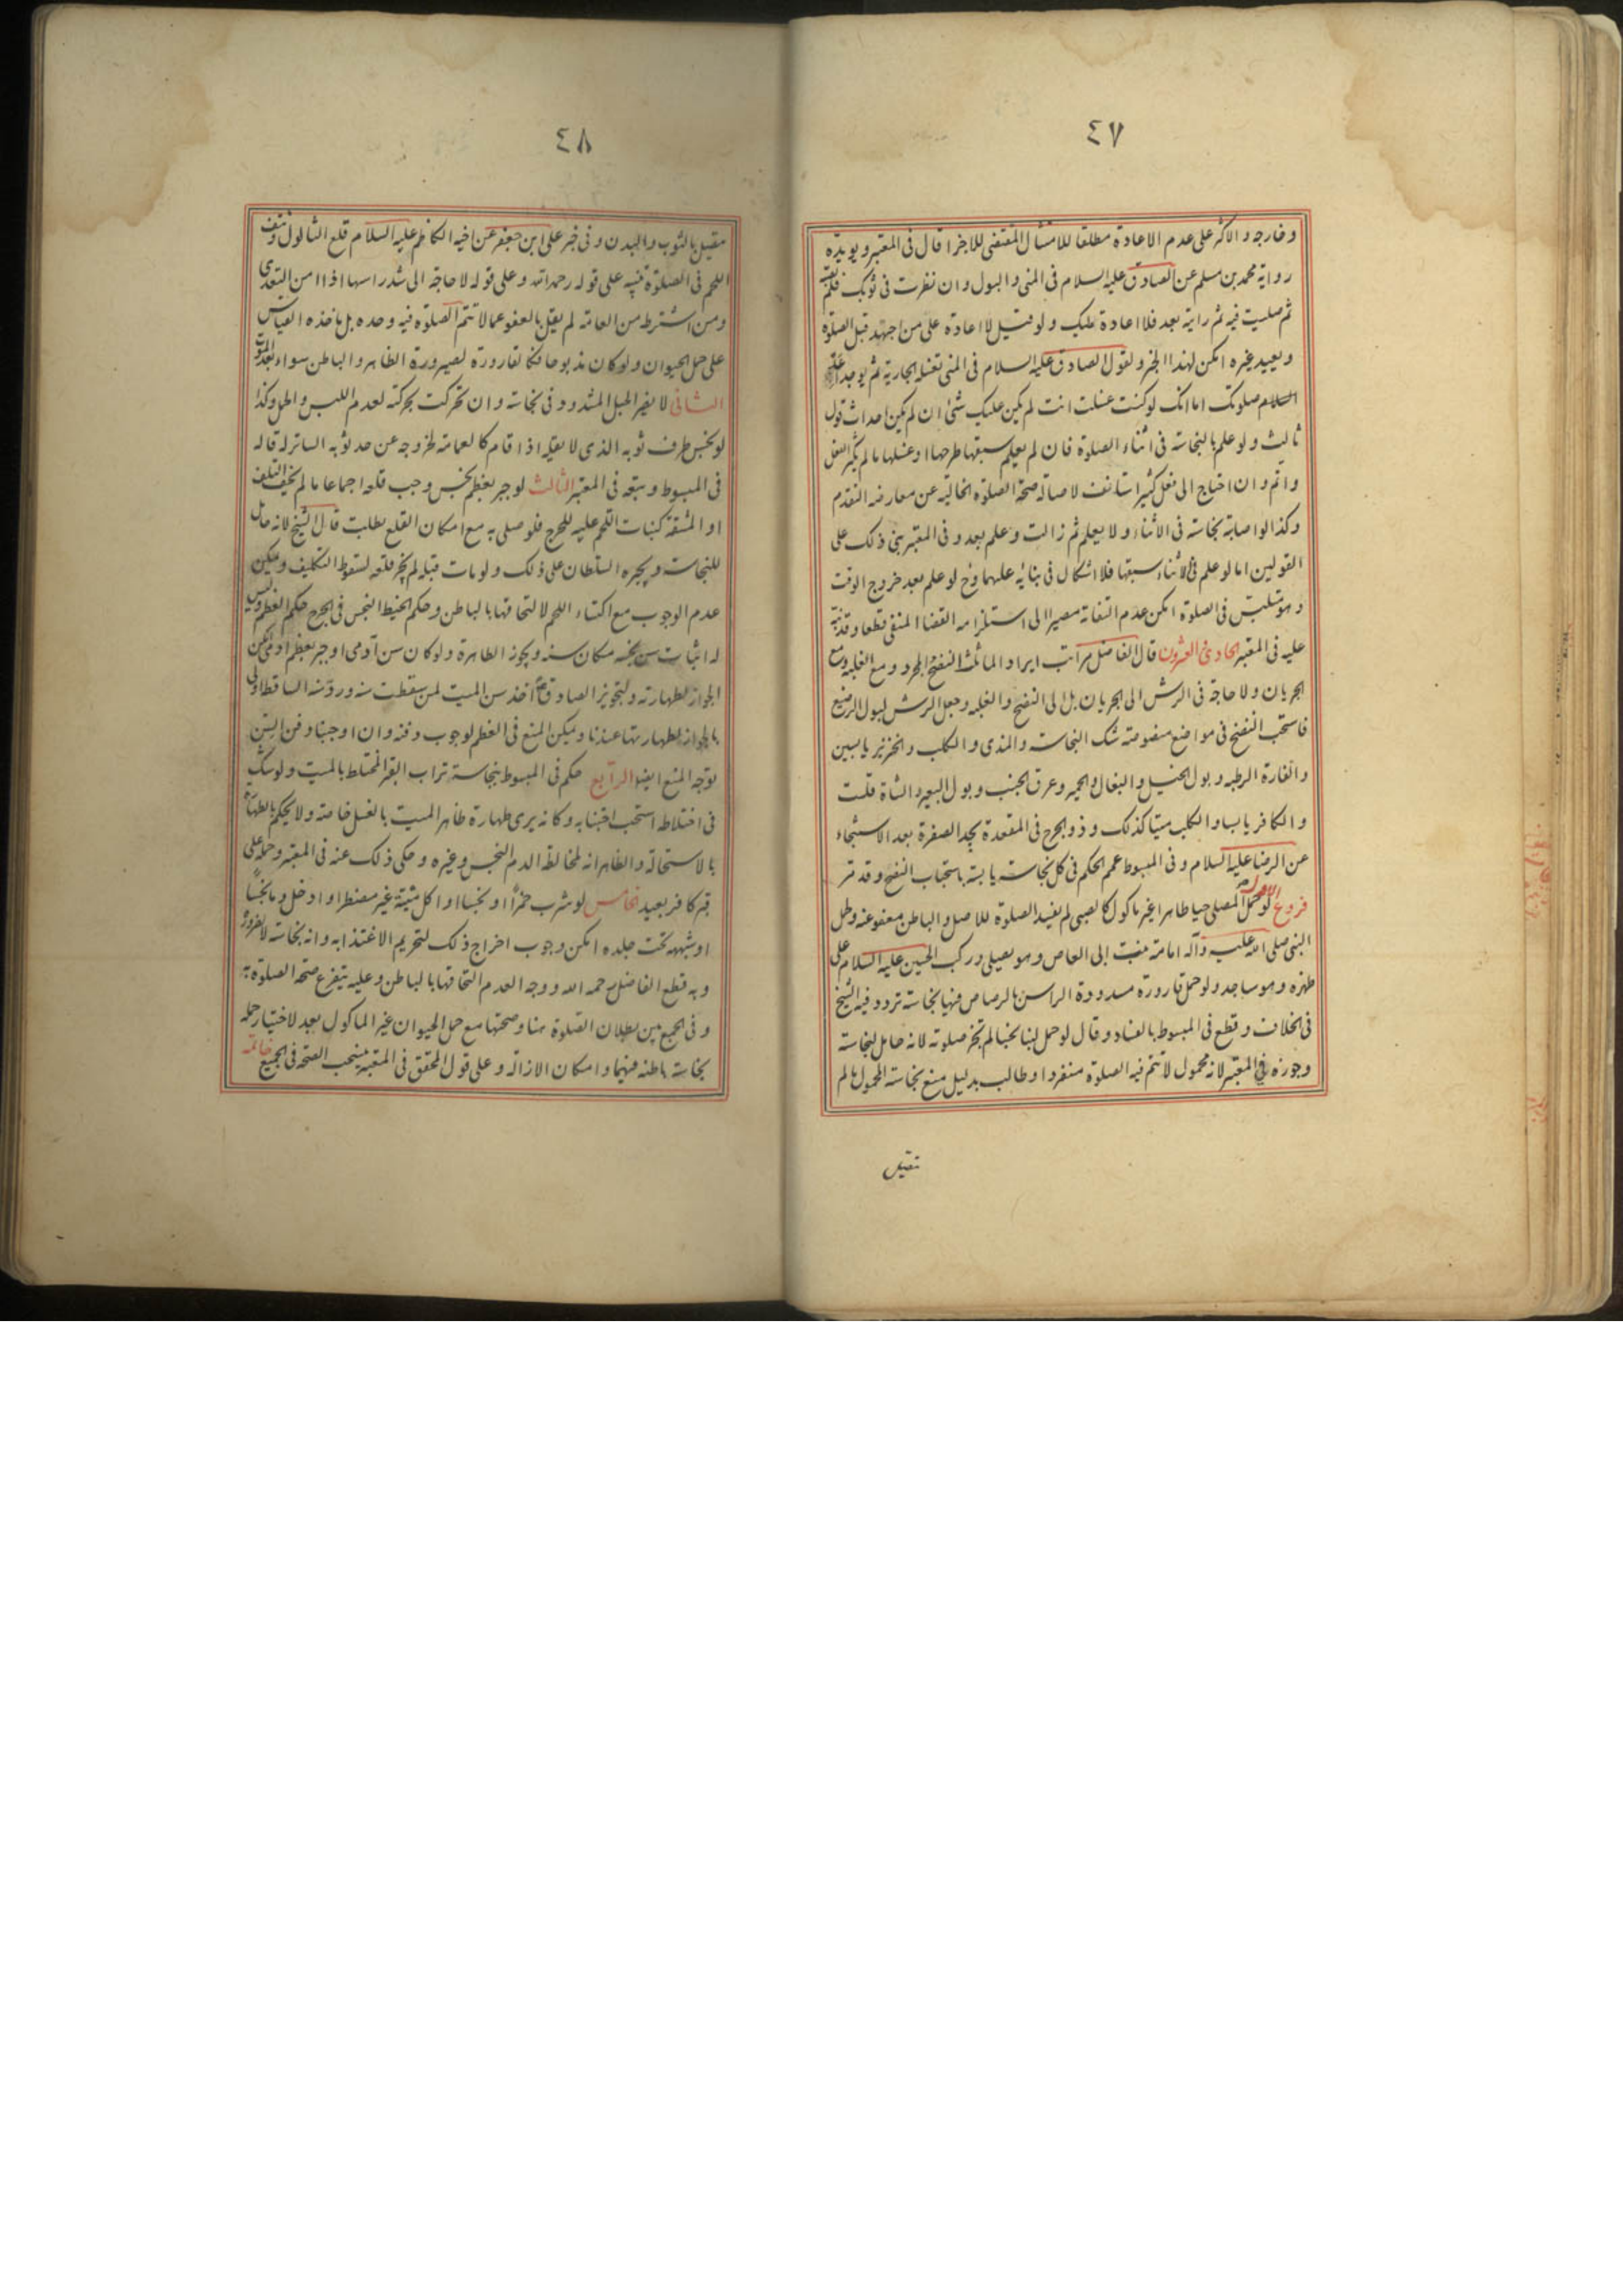 ٤٧
وخارجه والاكثر على عدم الاعادة مطلقا للامتثال المقتضى للاجزا قال فى المعتبر ويويده
رواية محمد بن مسلم عن الصادق عليه السلام فى المنى والبول وان نظرت فى ثوبك فلم تصبه
ثم صليت فيه ثم رايته بعد فلا اعادة عليك ولو قيل لا اعادة على من اجتهد قبل الصلوة
ويعيد غيره امكن لهذا الخبر ولقول الصادق عليه السلام فى المنى تغسله الجارية ثم يوجد اعد
صلوتك اما انك لو كنت غسلت انت لم يكن عليك شئ ان لم يكن احداث قول
ثالث ولو علم بالنجاسة فى اثناء الصلوة فان لم يعلم سبقها طرحها او غسلها ما لم يكثر الفعل
واتم وان احتاج الى فعل كثير استانف لاصالة صحة الصلوة الخالية عن معارضه التقدم
وكذا لو اصابه نجاسة فى الاثناء ولا يعلم ثم زالت وعلم بعد وفى المعتبر بنى ذلك على
القولين اما لو علم فى الاثناء سبقها فلا اشكال فى بنائه عليهما وح لو علم بعد خروج الوقت
وهو متلبس فى الصلوة امكن عدم التفاته مصيرا الى استلزامه القضا المنفى قطعا وقد نبه
عليه فى المعتبر الحادى والعشرون قال الفاضل مراتب ايراد الماء ثلث النضح المجرد ومع الغلبه ومع
الجريان ولا حاجة فى الرش الى الجريان بل الى النضح والغلبه وجعل الرش لبول الرضيع
فاستحب النضح فى مواضع منصوصة شك النجاسة والمذى والكلب والخنزير يابسين
والفارة الرطبه وبول الخيل والبغال والحمير وعرق الجنب وبول البعير والشاة قلت
والكافر يابسا والكلب ميتا كذلك وذو الجرح فى المقعدة يجد الصفرة بعد الاستنجاء
عن الرضا عليه السلام وفى المبسوط عمم الحكم فى كل نجاسة يابسة باستحباب النضح وقد مر
فروع الاول لو حمل المصلى حيا طاهرا غير ماكول كالصبى لم يفسد الصلوة للاصل والباطن معفو عنه وحمل
النبى صلى الله عليه وآله امامة بنت ابى العاص وهو يصلى وركب الحسين عليه السلام على
ظهره وهو ساجد ولو حمل قارورة مسدودة الراس بالرصاص فيها نجاسة تردد فيه الشيخ
فى الخلاف وقطع فى المبسوط بالفساد وقال لو حمل لبنا نجسا لم تجز صلوته لانه حامل لنجاسة
وجوزه فى المعتبر لانه محمول لا تتم فيه الصلوة منفردا وطالب بدليل منع نجاسة المحمول ما لم
تتصل
٤٨
تتصل بالثوب والبدن وفى خبر على ابن جعفر عن اخيه الكاظم عليه السلام قلع الثالول ونتف
اللحم فى الصلوة تنبيه على قوله رحمه الله وعلى قوله لا حاجة الى شد راسها اذا امن التعدى
ومن اشترطه من العامة لم يقل بالعفو عما لا تتم الصلوة فيه وحده بل ماخذه القياس
على حمل الحيوان ولو كان مذبوحا فكالقارورة لصيرورة الظاهر والباطن سواء بعد الموت
الثانى لا يضر الحبل المشدود فى نجاسة وان تحركت بحركته لعدم اللبس والحمل وكذا
لو نجس طرف ثوبه الذى لا يقله اذا قام كالعمامة لخروجه عن حد ثوبه الساتر له قاله
فى المبسوط وتبعه فى المعتبر الثالث لو جبر بعظم نجس وجب قلعه اجماعا ما لم يخف التلف
او المشقة كنبات اللحم عليه للحرج فلو صلى به مع امكان القلع بطلت قال الشيخ لانه حامل
للنجاسة ويجبره السلطان على ذلك ولو مات قبله لم يجز قلعه لسقوط التكليف ويمكن
عدم الوجوب مع اكتساء اللحم لالتحاقها بالباطن وحكم الخيط النجس فى الجرح حكم العظم وليس
له اثبات سن نجسه مكان سنه ويجوز الطاهرة ولو كان سن آدمى او جبر بعظم آدمى امكن
الجواز لطهارته ولتجويز الصادق ع اخذ سن الميت لمن سقطت سنه ورد سنه الساقطة اولى
بالجواز لطهارتها عندنا ويمكن المنع فى العظم لوجوب دفنه وان اوجبنا دفن السن
توجه المنع ايضا الرابع حكم فى المبسوط بنجاسة تراب القبر المختلط بالميت ولو شك
فى اختلاطه استحب اجتنابه وكانه يرى طهارة ظاهر الميت بالغسل خاصة ولا يحكم بالطهارة
بالاستحالة والظاهر انه لمخالطة الدم النجس وغيره وحكى ذلك عنه فى المعتبر وحمله على
قبر كافر بعيد الخامس لو شرب خمرا او نجسا او اكل ميتة غير مضطر او ادخل دما نجسا
او شبهه تحت جلده امكن وجوب اخراج ذلك لتحريم الاغتذا به وانه نجاسة لا لضرورة
وبه قطع الفاضل رحمه الله ووجه العدم التحاقها بالباطن وعليه يتفرع صحة الصلوة به
وفى الجمع بين بطلان الصلوة هنا وصحتها مع حمل الحيوان غير الماكول بعد لاختيار حمله
نجاسة باطنه فيهما وامكان الازالة وعلى قول المحقق فى المعتبر ينسحب الصحة فى الجميع خاتمه